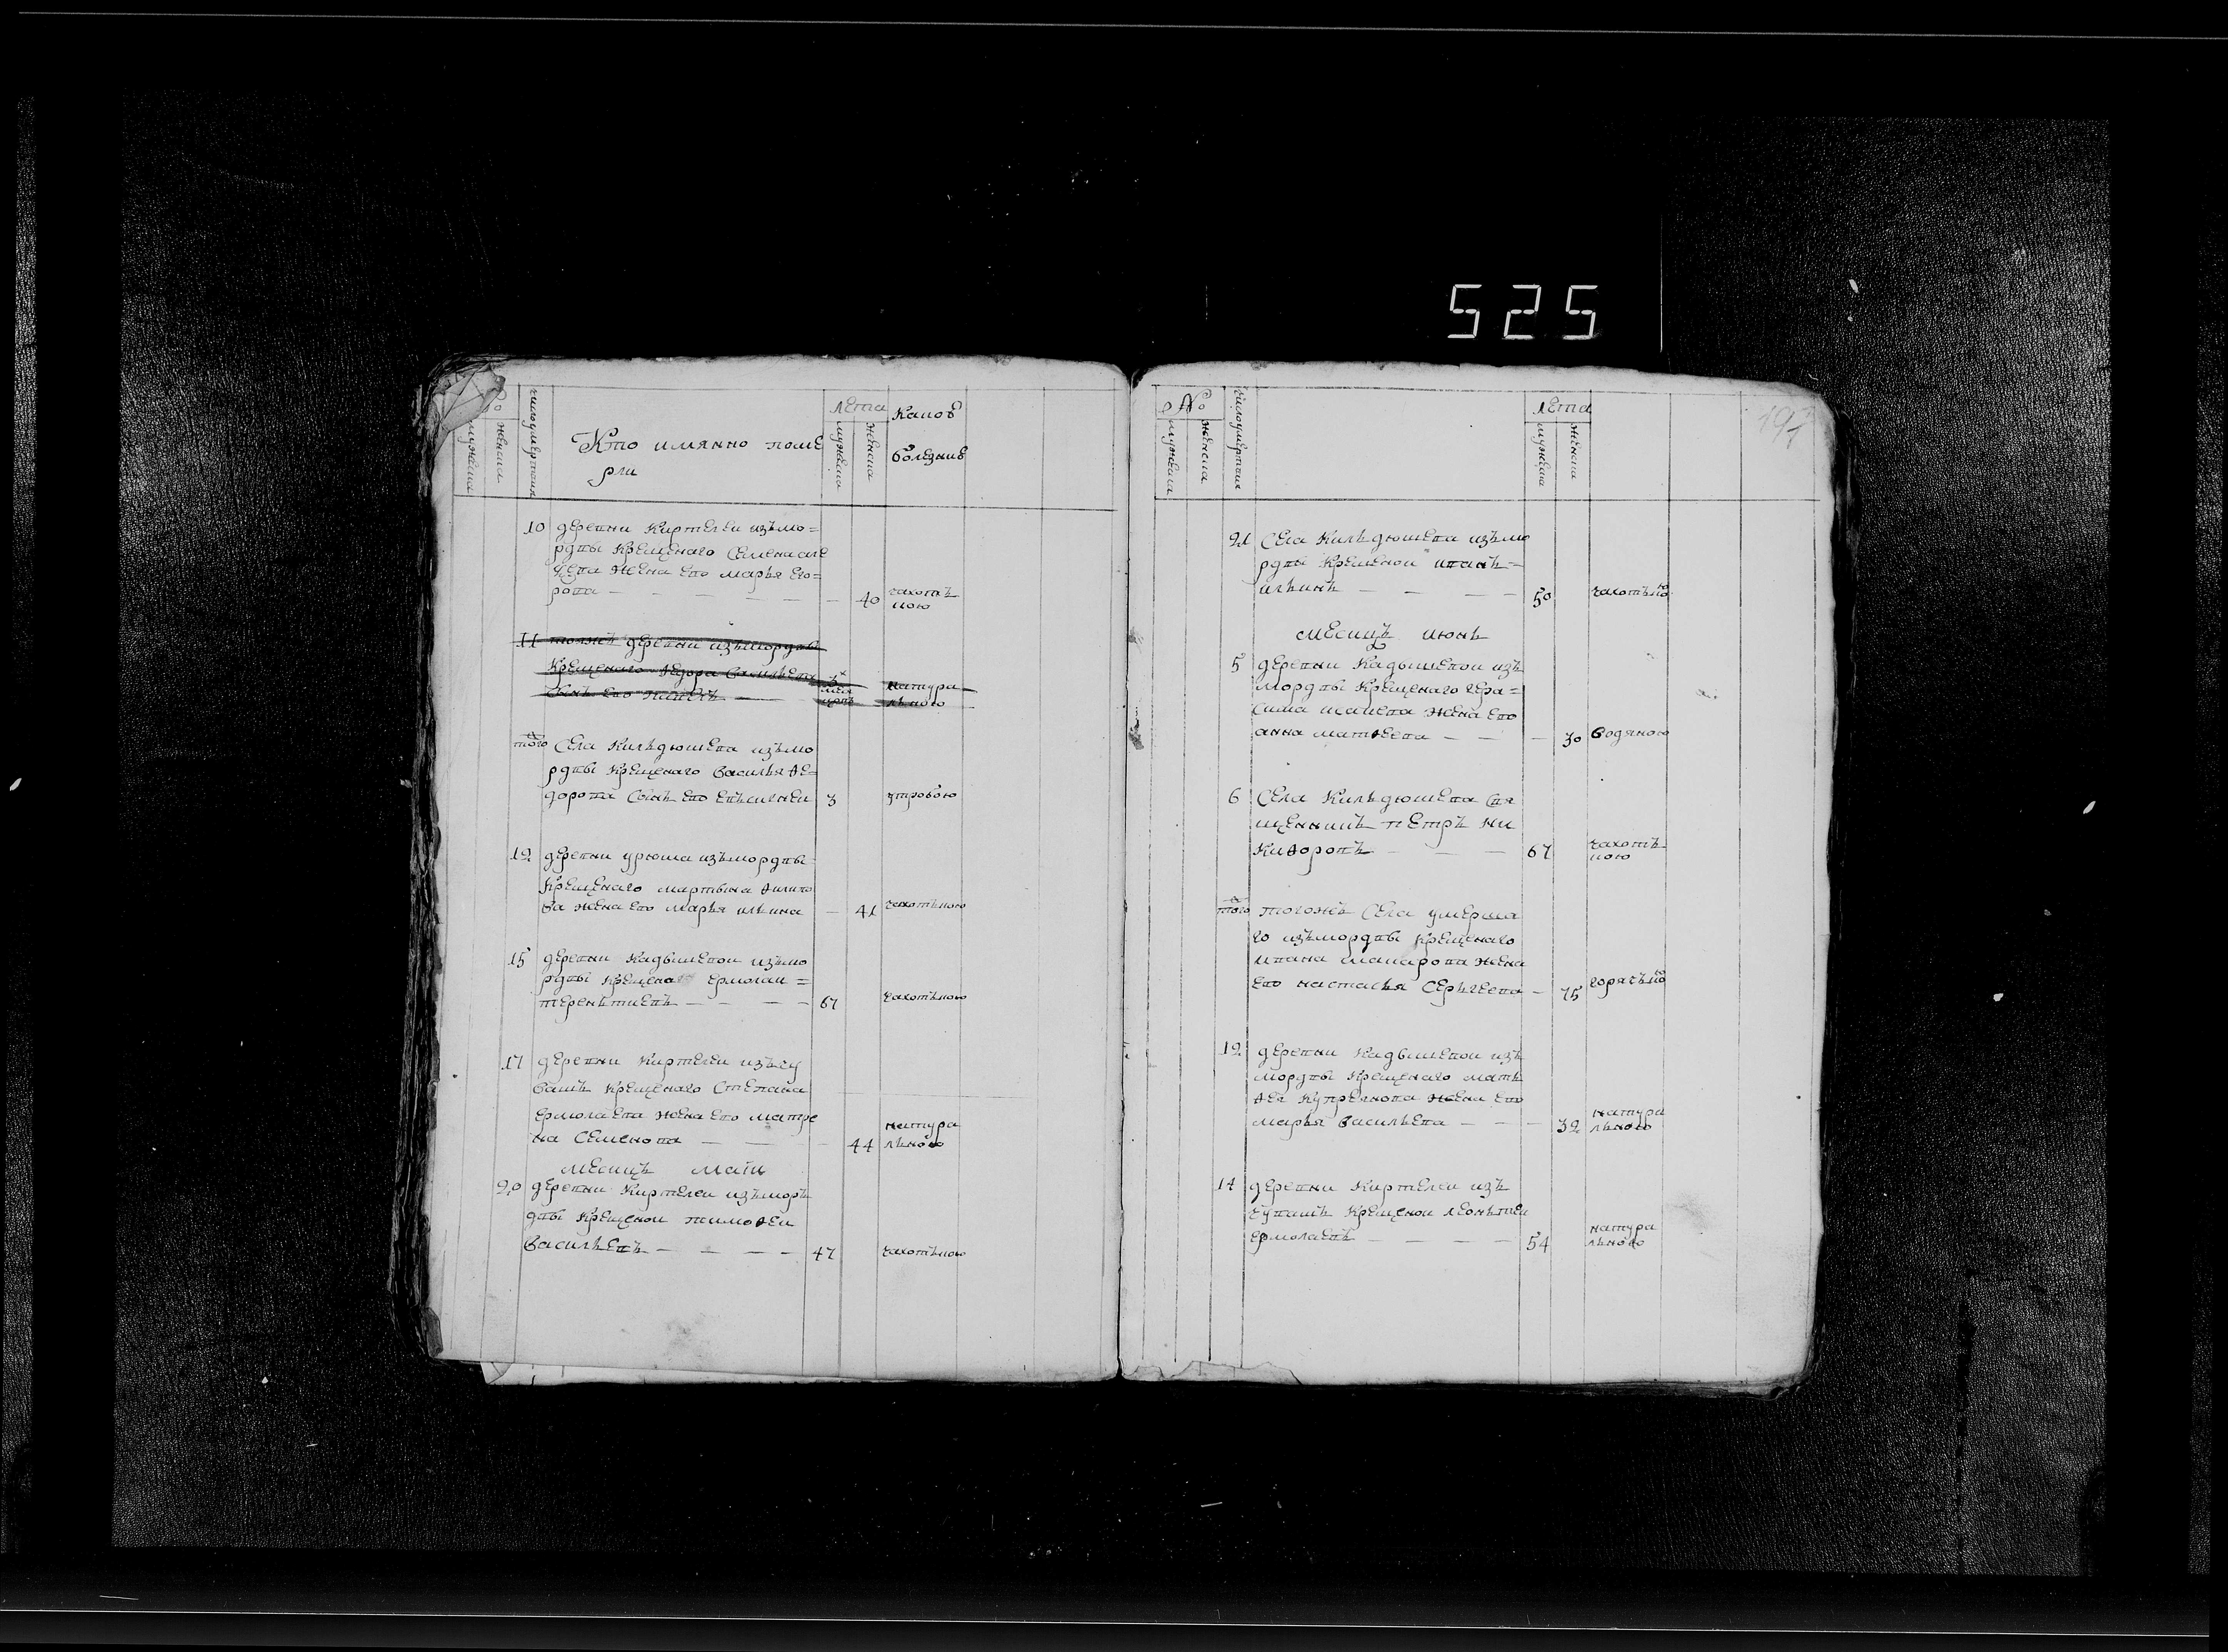 525
197
№
мужеска
женска
число умертвия
Кто имянно поме
рли
лета
мужеска
женска
Какою
болезнию
10 деревни Киртелеи изъ мо=
рдвы крещенаго Семена але
ѯева жена ево марья его=
рова — 40 чахотъ
ною
11 тояжъ деревни изъ мордвы
крещенаго Ѳедора Васильева
сынъ ево
натура
льною
того села Кильдюшева изъ мо
рдвы крещенаго Василья Ѳе=
дорова сынъ ево евъсигнеи 3 утробою
12 деревни урюма изъ мордвы
крещенаго мартына Филипо
ва жена ево марья ильина — 41 чахотъною
15 деревни Кадышевои изъ мо
рдвы крещена ермолаи =
терентиевъ — 67 чахотъною
17 деревни Киртелеи изъ чу
вашъ крещенаго Степана
ермолаева жена ево матре
на Семенова — 44 натура
льною
месицъ маiи
20 деревни Киртелеи изъ моръ
двы крещенои тимоѳеи
Васильевъ — 47 чахотъною
№
мужеска
женска
число умертвия
лета
мужеска
женска
21 Села Кильдюшева изъ мо
рдвы крещенои иванъ =
ильинъ — 50 чахотъною
месицъ июнь
5 деревни Кадышевои изъ
мордвы крещенаго гера=
сима исаиева жена ево
анна матвеева — 30 водяною
6 Села Кильдюшева свя
щенникъ петръ ни
киѳоровъ — 67 чахотъ
ною
того тогожъ села умерша
го изъ мордвы крещенаго
ивана макарова жена
ево настасья Серьгеева — 75 горячьною
12 деревни Кадышевои изъ
мордвы крещенаго матъ
ѳея куприянова жена ево
марья Васильева — 32 натура
льною
14 деревни Киртелеи изъ
чувашъ крещенои леонътеи
ермолаевъ — 54 натура
льною